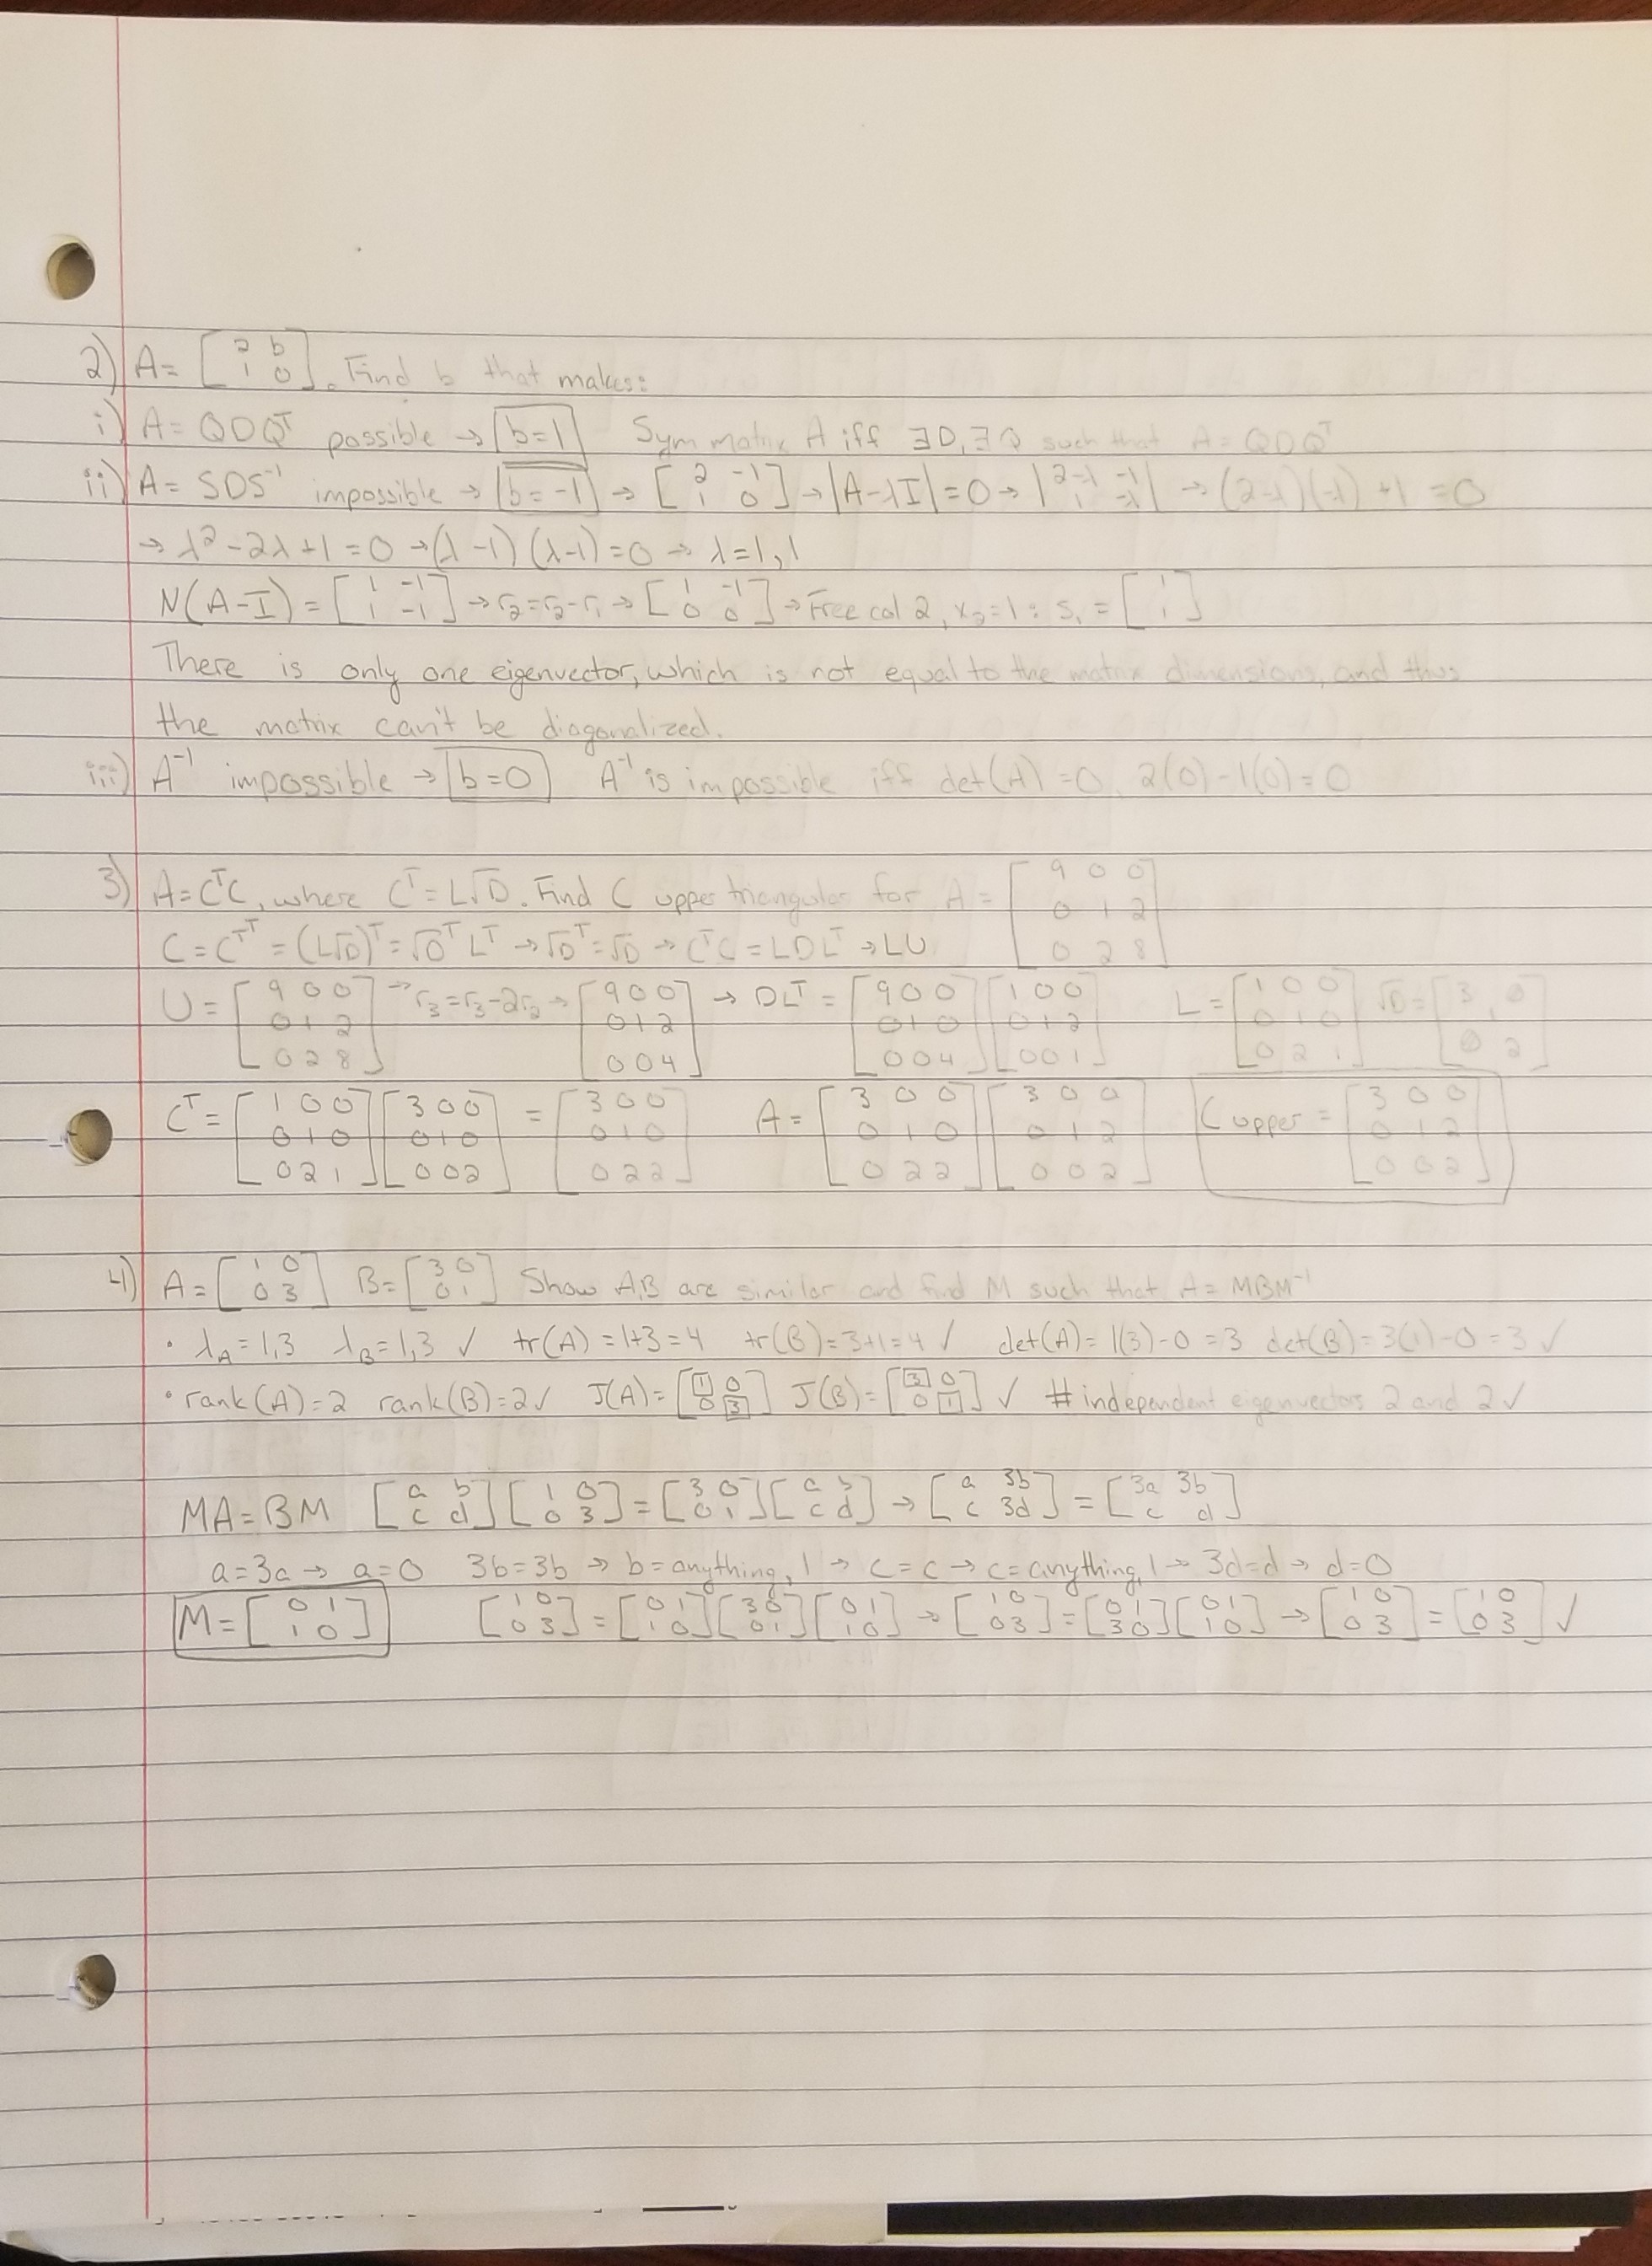 2) A = [2 b; 1 0]. Find b that makes:
i) A = QDQᵀ possible → b=1 Sym matrix A iff ∃D, ∃Q such that A = QDQᵀ
ii) A = SDS⁻¹ impossible → b=-1 → [2 -1; 1 0] → |A-λI| = 0 → |2-λ -1; 1 -λ| → (2-λ)(-λ) +1 = 0
→ λ² - 2λ + 1 = 0 → (λ-1)(λ-1) = 0 → λ=1,1
N(A-I) = [1 -1; 1 -1] → r₂=r₂-r₁ → [1 -1; 0 0] → Free col 2, x₂=1: s₁ = [1; 1]
There is only one eigenvector, which is not equal to the matrix dimensions, and thus
the matrix can't be diagonalized.
iii) A⁻¹ impossible → b=0 A⁻¹ is impossible iff det(A) = 0, 2(0)-1(0)=0
3) A=CᵀC, where Cᵀ=L√D. Find C upper triangular for A = [9 0 0; 0 1 2; 0 2 8]
C = Cᵀᵀ = (L√D)ᵀ = √Dᵀ Lᵀ → √Dᵀ=√D → CᵀC = LDLᵀ → LU
U = [9 0 0; 0 1 2; 0 2 8] → r₃=r₃-2r₂ → [9 0 0; 0 1 2; 0 0 4] → DLᵀ = [9 0 0; 0 1 0; 0 0 4] [1 0 0; 0 1 2; 0 0 1] L = [1 0 0; 0 1 0; 0 2 1] √D = [3 0; 1; 0 2]
Cᵀ = [1 0 0; 0 1 0; 0 2 1] [3 0 0; 0 1 0; 0 0 2] = [3 0 0; 0 1 0; 0 2 2] A = [3 0 0; 0 1 0; 0 2 2] [3 0 0; 0 1 2; 0 0 2] C upper = [3 0 0; 0 1 2; 0 0 2]
4) A = [1 0; 0 3] B = [3 0; 0 1] Show A,B are similar and find M such that A = MBM⁻¹
· λA = 1,3 λB = 1,3 ✓ tr(A) = 1+3 = 4 tr(B) = 3+1 = 4 ✓ det(A) = 1(3)-0 = 3 det(B) = 3(1)-0 = 3 ✓
· rank(A) = 2 rank(B) = 2 ✓ J(A) = [1 0; 0 3] J(B) = [3 0; 0 1] ✓ # independent eigenvectors 2 and 2 ✓
MA = BM [a b; c d] [1 0; 0 3] = [3 0; 0 1] [a b; c d] → [a 3b; c 3d] = [3a 3b; c d]
a=3a → a=0 3b=3b → b=anything, 1 → c=c → c=anything, 1 → 3d=d → d=0
M = [0 1; 1 0] [1 0; 0 3] = [0 1; 1 0] [3 0; 0 1] [0 1; 1 0] → [1 0; 0 3] = [0 1; 3 0] [0 1; 1 0] → [1 0; 0 3] = [1 0; 0 3] ✓